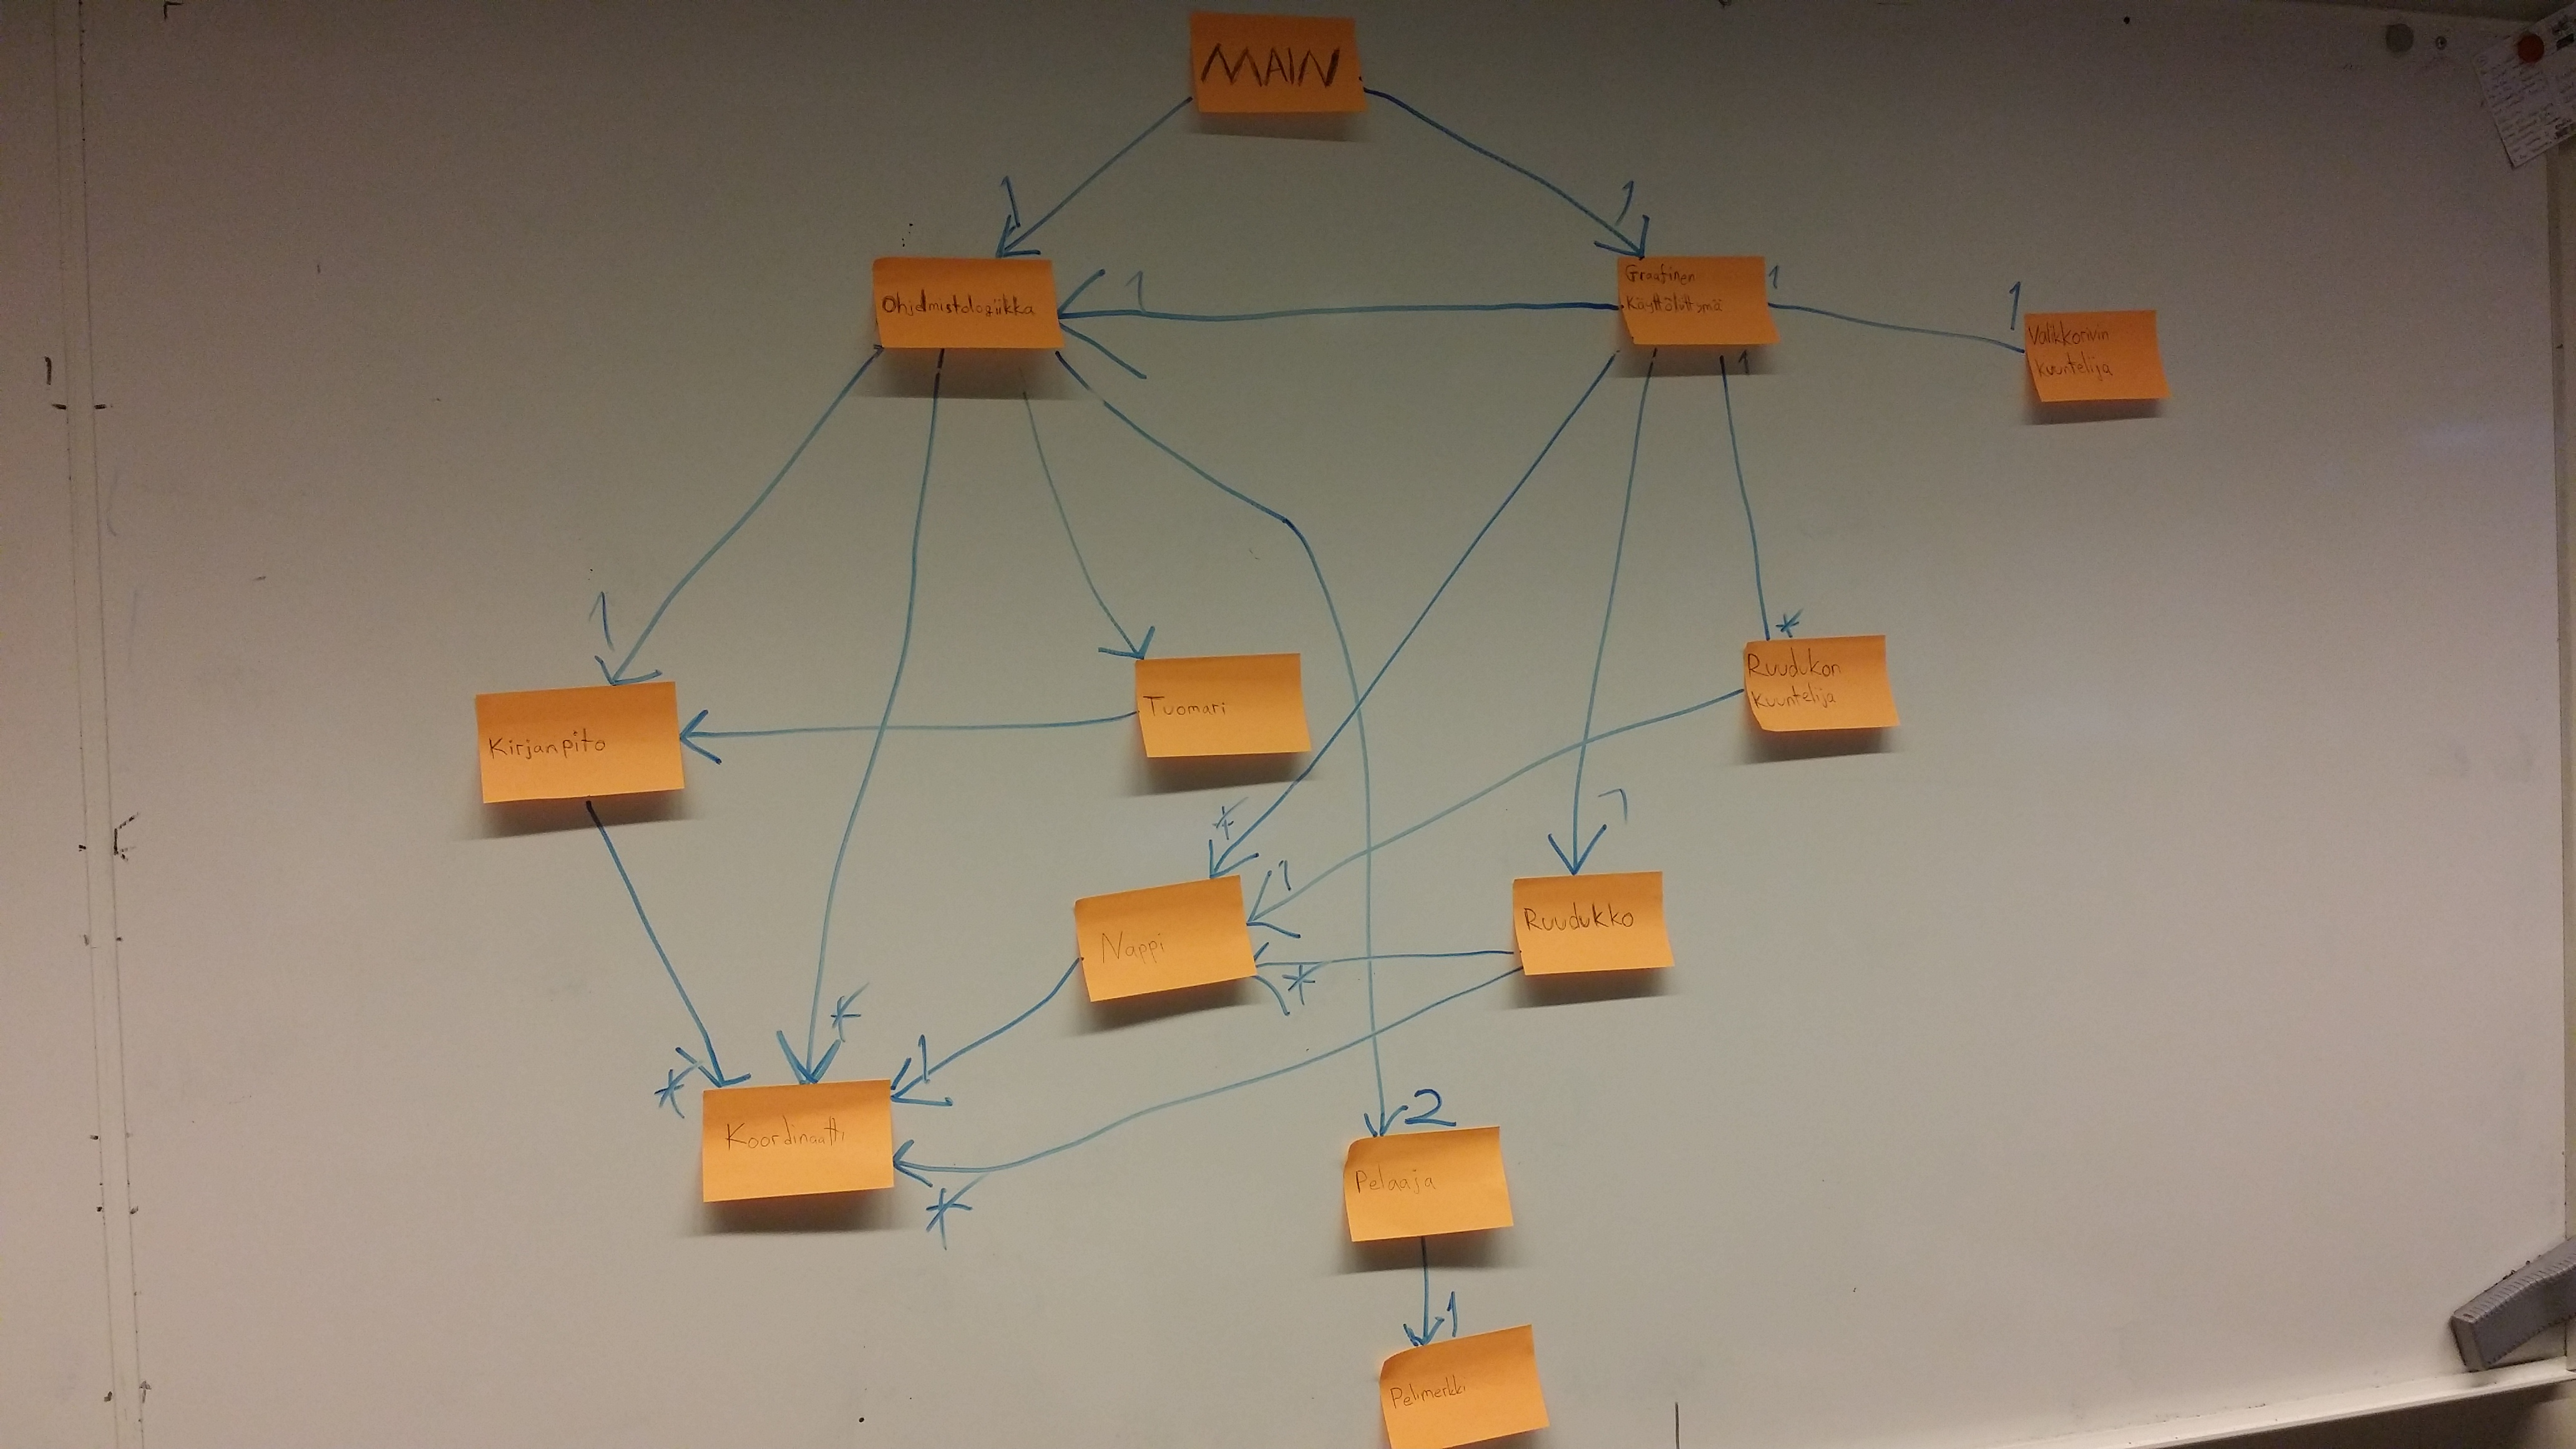 MAIN
1
1
Ohjelmistologiikka
1
Graafinen
Käyttöliittymä
1
1
1
Valikkorivin
kuuntelija
1
*
Kirjanpito
Tuomari
Ruudukon
kuuntelija
*
1
1
Nappi
*
Ruudukko
*
*
1
Koordinaatti
*
2
Pelaaja
1
Pelimerkki